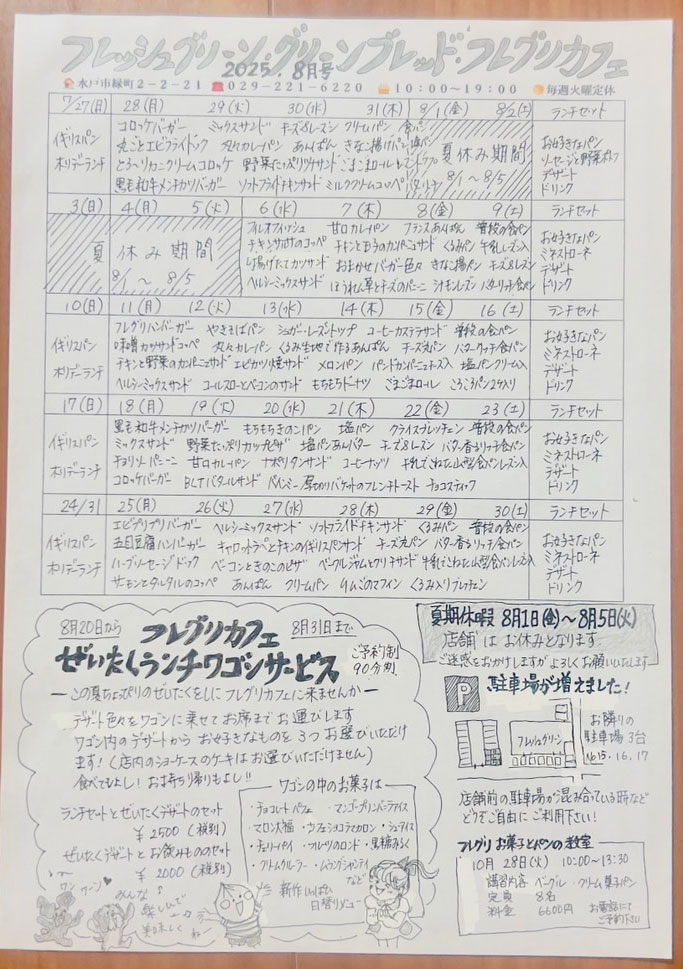 フレッシュグリーン・グリーンブレッド・フレグリカフェ
2025. 8月号
水戸市緑町2-2-21 029-221-6220 10:00〜19:00 毎週火曜定休
7/27(日) 28(月) 29(火) 30(水) 31(木) 8/1(金) 8/2(土) ランチセット
イギリスパン
ホリデーランチ
コロッケバーガー ミックスサンド チーズ&レーズン クリームパン 食パン
丸ごとエビフライドック 丸々カレーパン あんぱん きなこ揚げパン 塩パン
とろ〜りカニクリームコロッケ 野菜たっぷりツナサンド ごまごまロール
黒毛和牛メンチカツバーガー ソフトフライドチキンサンド ミルククリームコッペ
夏休み期間
8/1 〜 8/5
お好きなパン
ソーセージと野菜ポトフ
デザート
ドリンク
3(日) 4(月) 5(火) 6(水) 7(木) 8(金) 9(土) ランチセット
夏休み期間
8/1 〜 8/5
フィレオフィッシュ 甘口カレーパン フランスあんぱん 普段の食パン
チキンサラダのコッペ チキンとごぼうのカンパーニュサンド くるみパン 牛乳レーズン入
揚げたてカツサンド おまかせバーガー色々 きなこ揚パン チーズ&レーズン
ヘルシーミックスサンド ほうれん草とチーズのパニーニ シナモンレーズン バターリッチ食パン
お好きなパン
ミネストローネ
デザート
ドリンク
10(日) 11(月) 12(火) 13(水) 14(木) 15(金) 16(土) ランチセット
イギリスパン
ホリデーランチ
フレグリハンバーガー やきそばパン シュガーレーズントップ コーヒーカステラサンド 普段の食パン
味噌カツサンドコッペ 丸々カレーパン くるみ生地で作るあんぱん チーズ丸パン バターリッチ食パン
チキンと野菜のカンパーニュサンド エビカツ焼サンド メロンパン パンドカンパーニュチーズ入 塩パンクリーム入
ヘルシーミックスサンド コールスローとベーコンのサンド もちもちドーナツ ごまごまロール ころころパン2ケ入り
お好きなパン
ミネストローネ
デザート
ドリンク
17(日) 18(月) 19(火) 20(水) 21(木) 22(金) 23(土) ランチセット
イギリスパン
ホリデーランチ
黒毛和牛メンチカツバーガー もちもちきのこパン 塩パン クライスブレッチェン 普段の食パン
ミックスサンド 野菜たっぷりカップピザ 塩パンあんバター チーズ&レーズン バター香るリッチ食パン
チョリソパニーニ 甘口カレーパン ナポリタンサンド コーヒーナッツ 牛乳でこねた山型食パンレーズン入
コロッケバーガー BLTバタールサンド パペミニー 厚切りバケットのフレンチトースト チョコスティック
お好きなパン
ミネストローネ
デザート
ドリンク
24/31 25(月) 26(火) 27(水) 28(木) 29(金) 30(土) ランチセット
イギリスパン
ホリデーランチ
エビプリプリバーガー ヘルシーミックスサンド ソフトフライドチキンサンド くるみパン 普段の食パン
五目豆腐ハンバーガー キャロットラペとチキンのイギリスパンサンド チーズ丸パン バター香るリッチ食パン
ハーブソーセージドック ベーコンときのこのピザ ベーグルジャムとクリチサンド 牛乳でこねた山型食パンレーズン入
サーモンとタルタルのコッペ あんぱん クリームパン りんごのマフィン くるみ入りブレッチェン
お好きなパン
ミネストローネ
デザート
ドリンク
8月20日から フレグリカフェ 8月31日まで
ぜいたくランチワゴンサービス
ご予約制
90分制
ーこの夏ちょっぴりのぜいたくをしにフレグリカフェに来ませんかー
デザート色々をワゴンに乗せてお席までお運びします
ワゴン内のデザートからお好きなものを3つお選びいただけ
ます!(店内のショーケースのケーキはお選びいただけません)
食べてもよし!お持ち帰りもよし!!
ランチセットとぜいたくデザートのセット
¥2500(税別)
ぜいたくデザートとお飲みもののセット
¥2000(税別)
ワゴンの中のお菓子は
・チョコレートパフェ ・マンゴープリンバーアイス
・マロン大福 ・カフェショコラマカロン ・シューアイス
・チェリーパイ ・フルーツのロンド ・黒糖みるく
・クリームクルーラー ・ムラングシャンティ
など
新作いっぱい
日替りメニュー
ワンワーン
みんな♪
楽しんで
美味しくね
夏期休暇 8月1日(金)〜8月5日(火)
店舗はお休みとなります
ご迷惑をおかけしますがよろしくお願いいたします
P 駐車場が増えました!
フレッシュグリーン
お隣りの
駐車場3台
No15.16.17
店舗前の駐車場が混み合っている時など
どうぞご自由にご利用下さい!
フレグリお菓子とパンの教室
10月28日(火) 10:00〜13:30
講習内容 ベーグル・クリーム菓子パン
定員 8名
料金 6600円
お電話にて
ご予約下さい